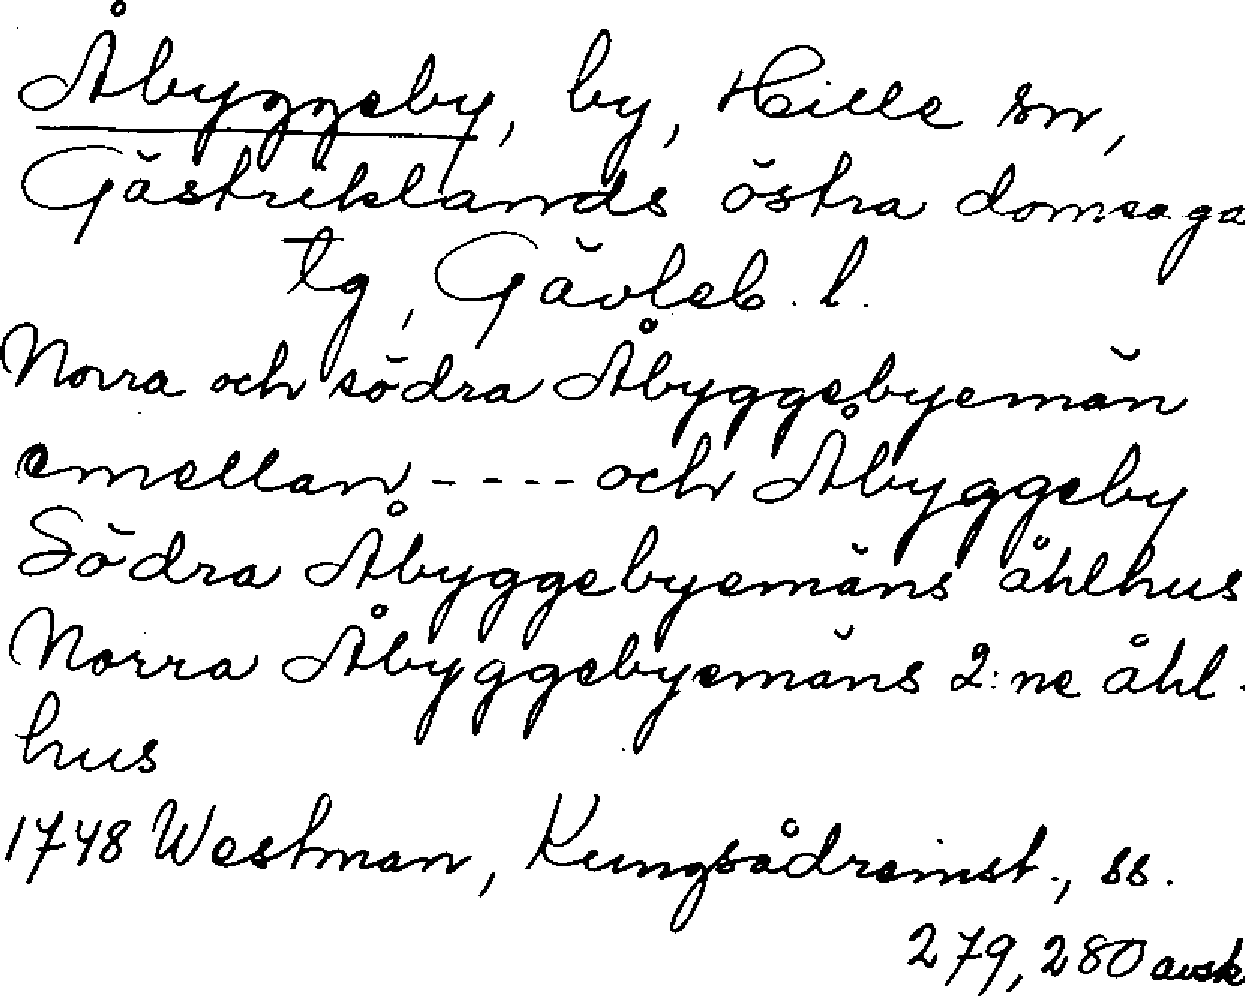 Åbyggeby, by, Hille sn,
Gästriklands östra domsaga
tg, Gävleb. l.
Norra och södra Åbyggebyemän
emellan - - - - och Åbyggeby
Södra Åbyggebyemäns åhlhus
Norra Åbyggebyemäns 2:ne åhl-
hus
1748 Westman, Kungsådreinst., ss.
279, 280 avsk